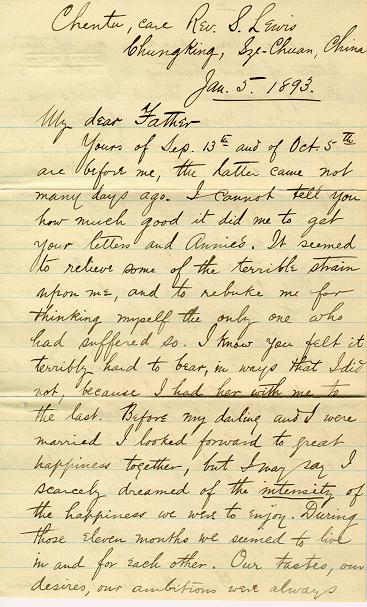 Chentu, care Rev. S. Lewis
Chungking, Sze-Chuan, China
Jan. 5. 1893.
My dear Father
Yours of Sep. 13th and of Oct. 5th
are before me, the latter came not
many days ago. I cannot tell you
how much good it did me to get
your letters and Annie's. It seemed
to relieve some of the terrible strain
upon me, and to rebuke me for
thinking myself the only one who
had suffered so. I know you felt it
terribly hard to bear, in ways that I did
not, because I had her with me to
the last. Before my darling and I were
married I looked forward to great
happiness together, but I may say I
scarcely dreamed of the intensity of
the happiness we were to enjoy. During
those eleven months we seemed to live
in and for each other. Our tastes, our
desires, our ambitions were always